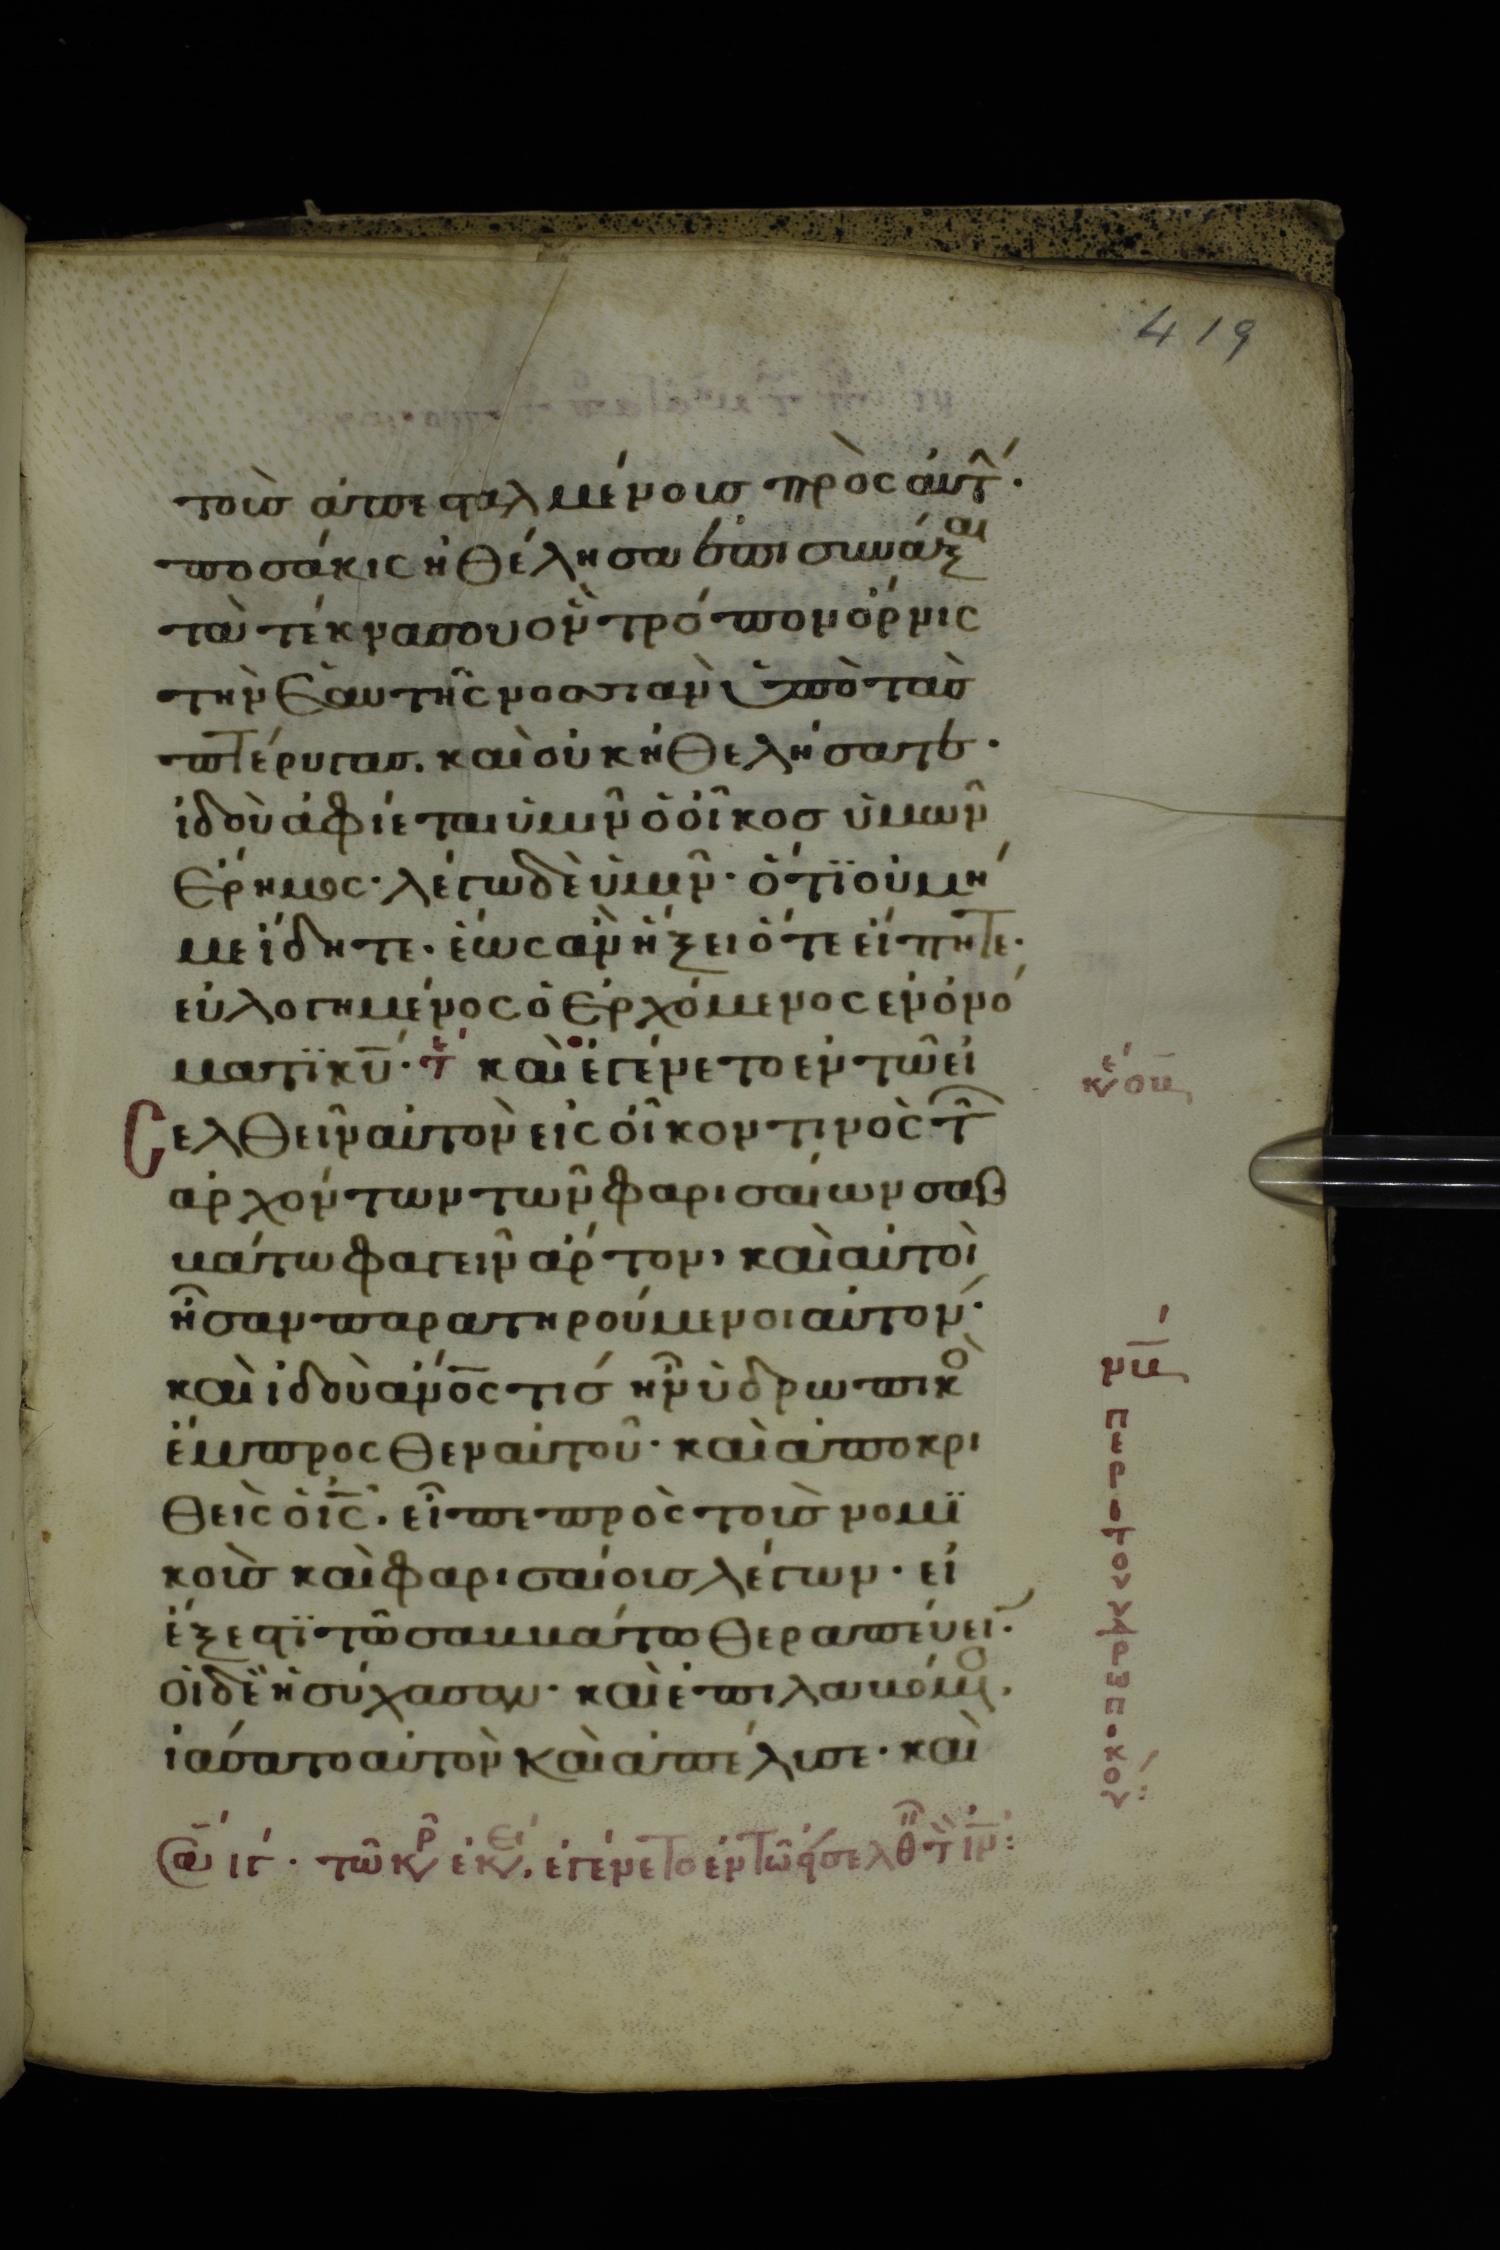 419
τοὺσ ἀπεσταλμένουσ πρὸς ἀυτ̂́·
ποσάκις ἠθέλησα ἐπισυνάξαι
τὰ τέκνα σου ὃν τρόπον ὄρνις
τὴν ἑαυτῆς νοσσιὰν ὑπὸ τὰσ
πτέρυγασ. καὶ οὐκ ἠθελήσατε·
ἰδοὺ ἀφίεται ὑμῖν ὁ οἶκοσ ὑμῶν
ἔρημος· λέγω δὲ ὑμῖν· ὅτϊ οὐ μή
με ἴδητε· ἕως ἂν ἥξει ὅτε εἴπητε·
εὐλογημένος ὁ ἐρχόμενος ἐν ὀνό
ματϊ κ̅υ̅· τε καὶ ἐγένετο ἐν τῶ εἰ
σελθεῖν αὐτὸν εἰς οἶκον τινὸς τ̂
ἀρχόντων τῶν φαρισαίων σαβ
βάτω φαγεῖν ἄρτον, καὶ αὐτοὶ
ἦσαν παρατηρούμενοι αὐτόν·
καὶ ἰδοὺ α̅ν̅ο̅ς τισ ἦν ὑδρωπικὸ
ἔμπροσθεν αὐτοῦ· καὶ ἀποκρι
θεὶς ὁ ι̅ς̅. εἶπε πρὸς τοὺσ νομϊ
κοὺσ καὶ φαρισαίουσ λέγων· εἰ
ἔξεστϊ τῶ σαββάτω θεραπεύειν·
οἱ δὲ ἡσύχασαν· καὶ ἐπιλαβόμο.
ἰάσατο αὐτὸν καὶ ἀπέλυσε· καὶ
μ̅η̅
περι του υδρωπικοῦ: